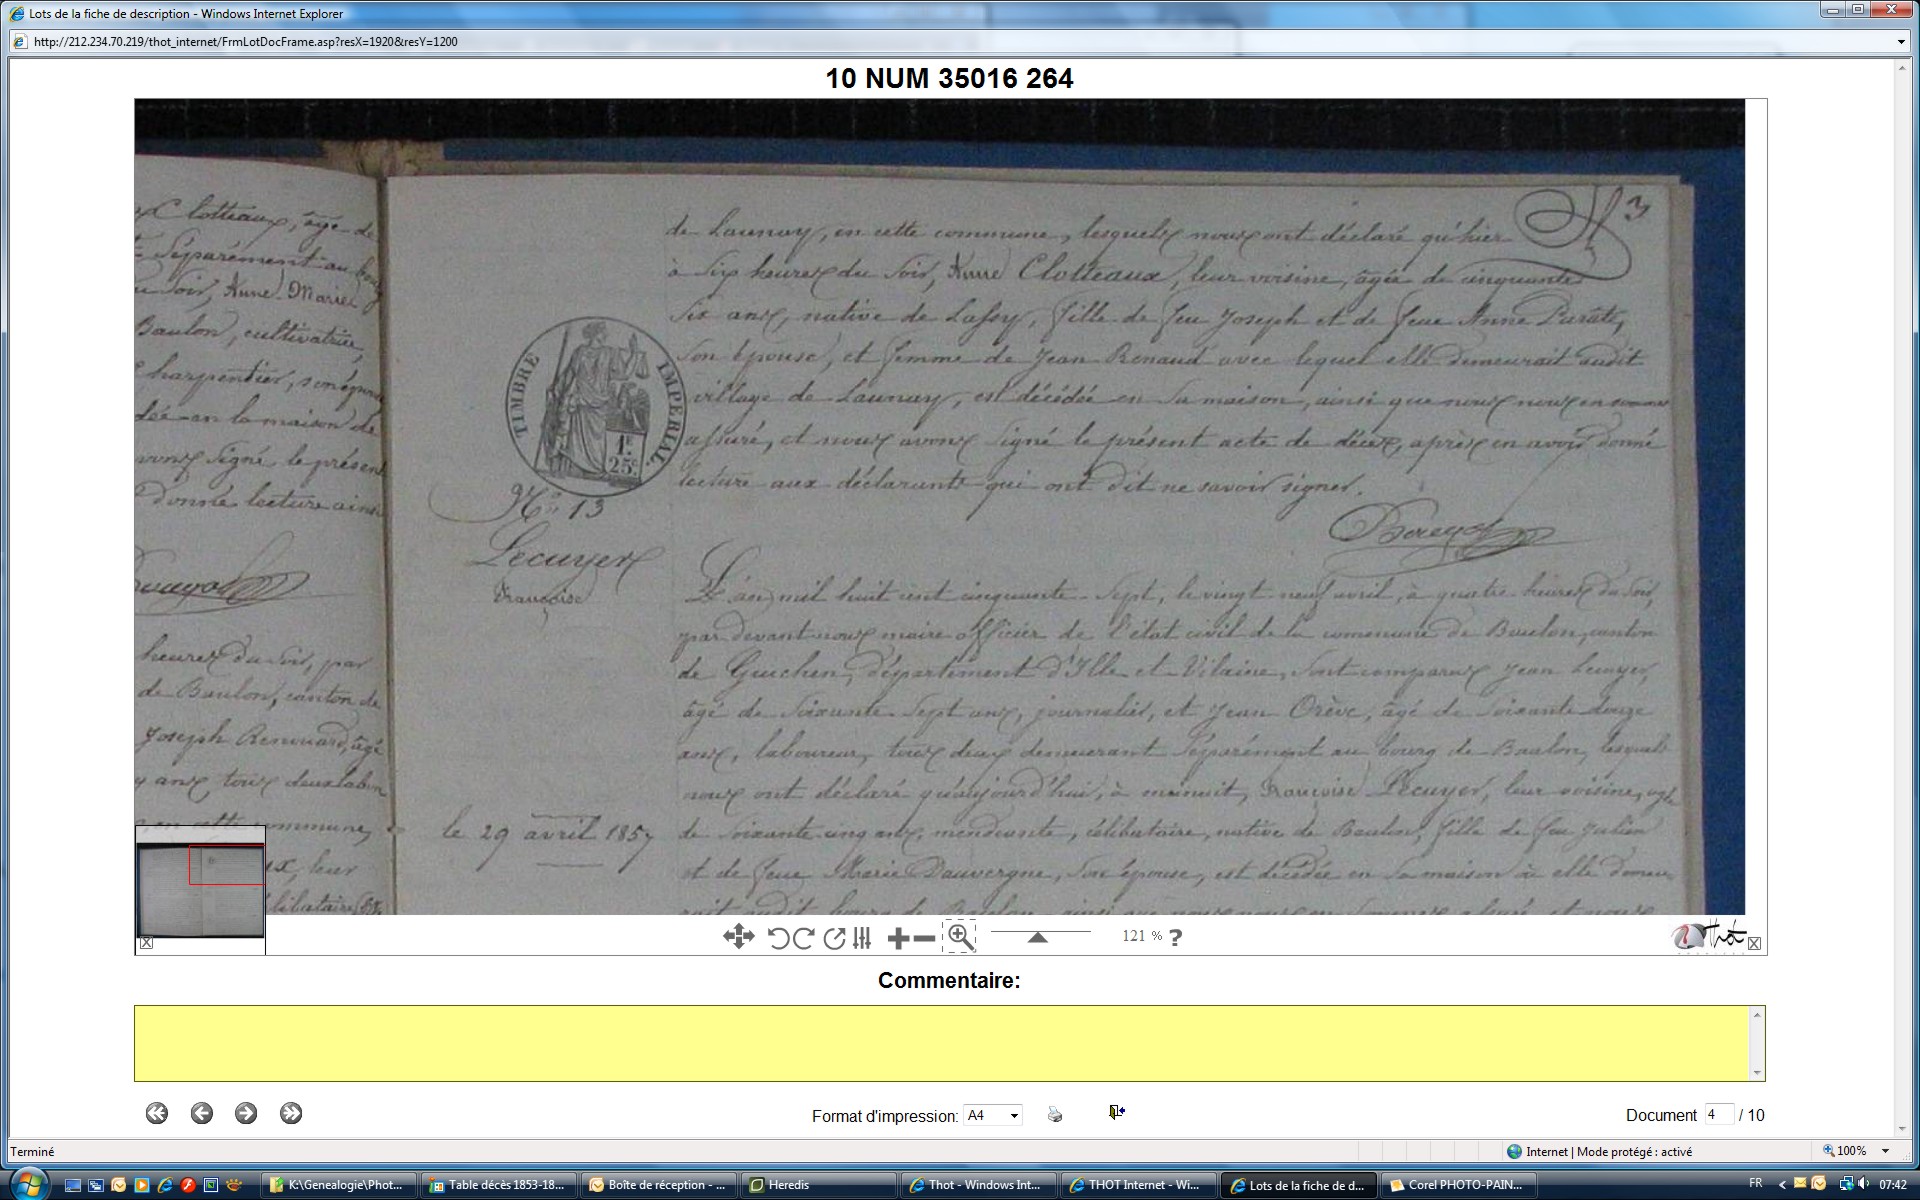 Lots de la fiche de description - Windows Internet Explorer
http://212.234.70.219/thot_internet/FrmLotDocFrame.asp?resX=1920&resY=1200
10 NUM 35016 264
Clotteaux, âgé de
Séparément au bourg
Soir, Anne-Marie
Baulon, cultivatrice,
charpentier, son époux
en la maison de
Signé le présent
donné lecture ainsi
heures du Soir, par
de Baulon, canton de
Joseph Renouard, âgé
ans tous deux labou
en cette commune,
leur
3
de Launay, en cette commune, lesquels nous ont déclaré qu'hier
à Six heures du Soir, Anne Clotteaux, leur voisine, âgée de cinquante
Six ans, native de Lassy, fille de feu Joseph et de feue Anne
son épouse, et femme de Jean Renaud avec lequel elle demeurait audit
village de Launay, est décédée en Sa maison, ainsi que nous nous en sommes
assuré, et nous avons Signé le présent acte de décès, après en avoir donné
lecture aux déclarants qui ont dit ne savoir signer.
TIMBRE IMPERIAL.
1F.
25c
No 13
Lecuyer
Françoise
le 29 avril 1857
L'an mil huit cent cinquante-Sept, le vingt neuf avril, à quatre heures du Soir,
par devant nous maire officier de l'état civil de la commune de Baulon, canton
de Guichen, département d'Ille et Vilaine, Sont comparus Jean Lecuyer,
âgé de Soixante-Sept ans, journalier, et Jean Orève, âgé de Soixante douze
ans, laboureur, tous deux demeurant Séparément au bourg de Baulon, lesquels
nous ont déclaré qu'aujourd'hui, à minuit, Françoise Lécuyer, leur voisine, âgée
de Soixante-cinq ans, mendiante, célibataire, native de Baulon, fille de feu Julien
et de feue Marie Dauvergne, Son épouse, est décédée en Sa maison à elle demeu
rait audit bourg de Baulon, ainsi que nous nous en Sommes assuré, et nous
121 % ?
Thot
Commentaire:
Format d'impression: A4
Document 4 / 10
Terminé
Internet | Mode protégé : activé
100%
K:\Genealogie\Phot...
Table décès 1853-18...
Boîte de réception - ...
Heredis
Thot - Windows Int...
THOT Internet - Wi...
Lots de la fiche de d...
Corel PHOTO-PAIN...
FR
07:42